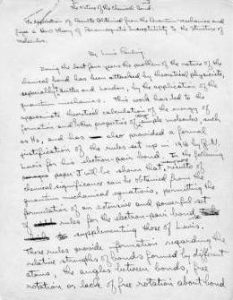 The Nature of the Chemical Bond.
Application of Results Obtained from the Quantum Mechanics and
from a New Theory of Paramagnetic Susceptibility to the Structure of
Molecules.
By Linus Pauling
During the last four years the problem of the nature of the
chemical bond has been attacked by theoretical physicists,
especially Heitler and London, by the application of the
quantum mechanics. This work has led to the
approximate theoretical calculation of the energy of
formation and other properties of simple molecules, such
as H2, and has also provided a formal
justification of the rules set up in 1916 by G.N.
Lewis for his electron-pair bond. In the following
paper it will be shown that
chemical significance can be obtained from the
quantum mechanical equations, permitting the
formulation of an extensive and powerful set
of rules for the electron-pair bond
supplementing those of Lewis.
These rules provide information regarding the
relative strengths of bonds formed by different
atoms, the angles between bonds, free
rotation or lack of free rotation about bond